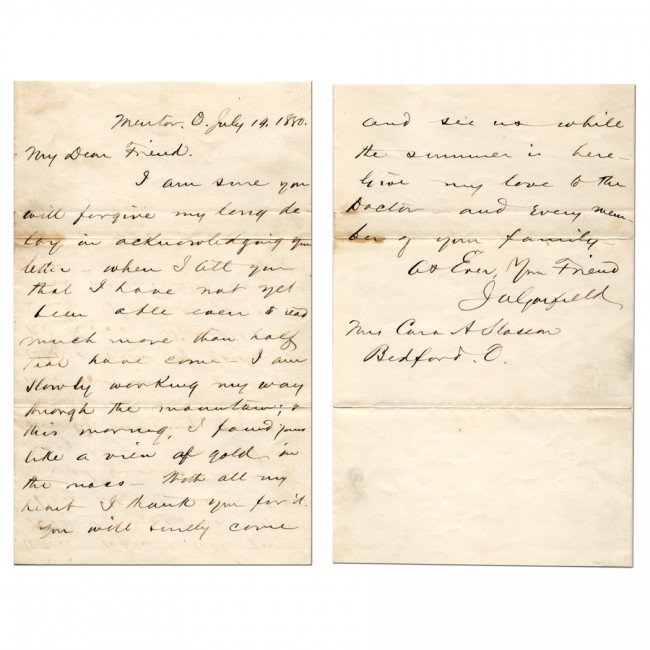 Mentor, O. July 19, 1880.
My Dear Friend.
I am sure you
will forgive my long de-
lay in acknowledging your
letter – when I tell you
that I have not yet
been able even to read
much more than half
that have come – I am
slowly working my way
through the mountain; &
this morning, I found yours
like a vien of gold in
the mass – With all my
heart I thank you for it.
You will surely come
and see us while
the summer is here –
Give my love to the
Doctor – and every mem-
ber of your family –
As Ever, Your Friend
J A Garfield
Mrs Cara A
Bedford. O.